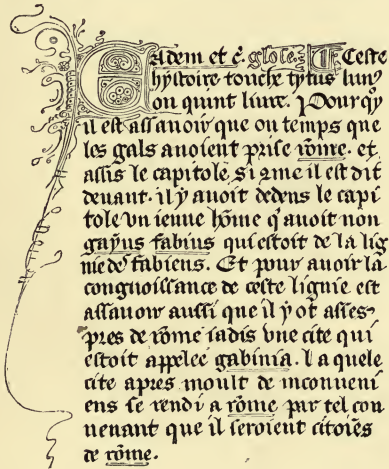 Eadem et c̄. glose. Ceste
hystoire touche tytus liuiꝰ
ou quint liure. Pour qͦy
il est assauoir que ou temps que
les gals auoient prise rōme. et
assis le capitole si ɔme il est dit
deuant. il y auoit dedens le capi
tole vn ieune hōme qͥ auoit non
gayus fabius qui estoit de la lig
nie de fabiens. Et pour auoir la
congnoissance de ceste lignie est
assauoir aussi que il y ot asses
pres de rōme iadis vne cite qui
estoit appelee gabinia. la quele
cite apres moult de inconueni
ens se rendi a rōme par tel con
uenant que il seroient citoiēs
de rōme.